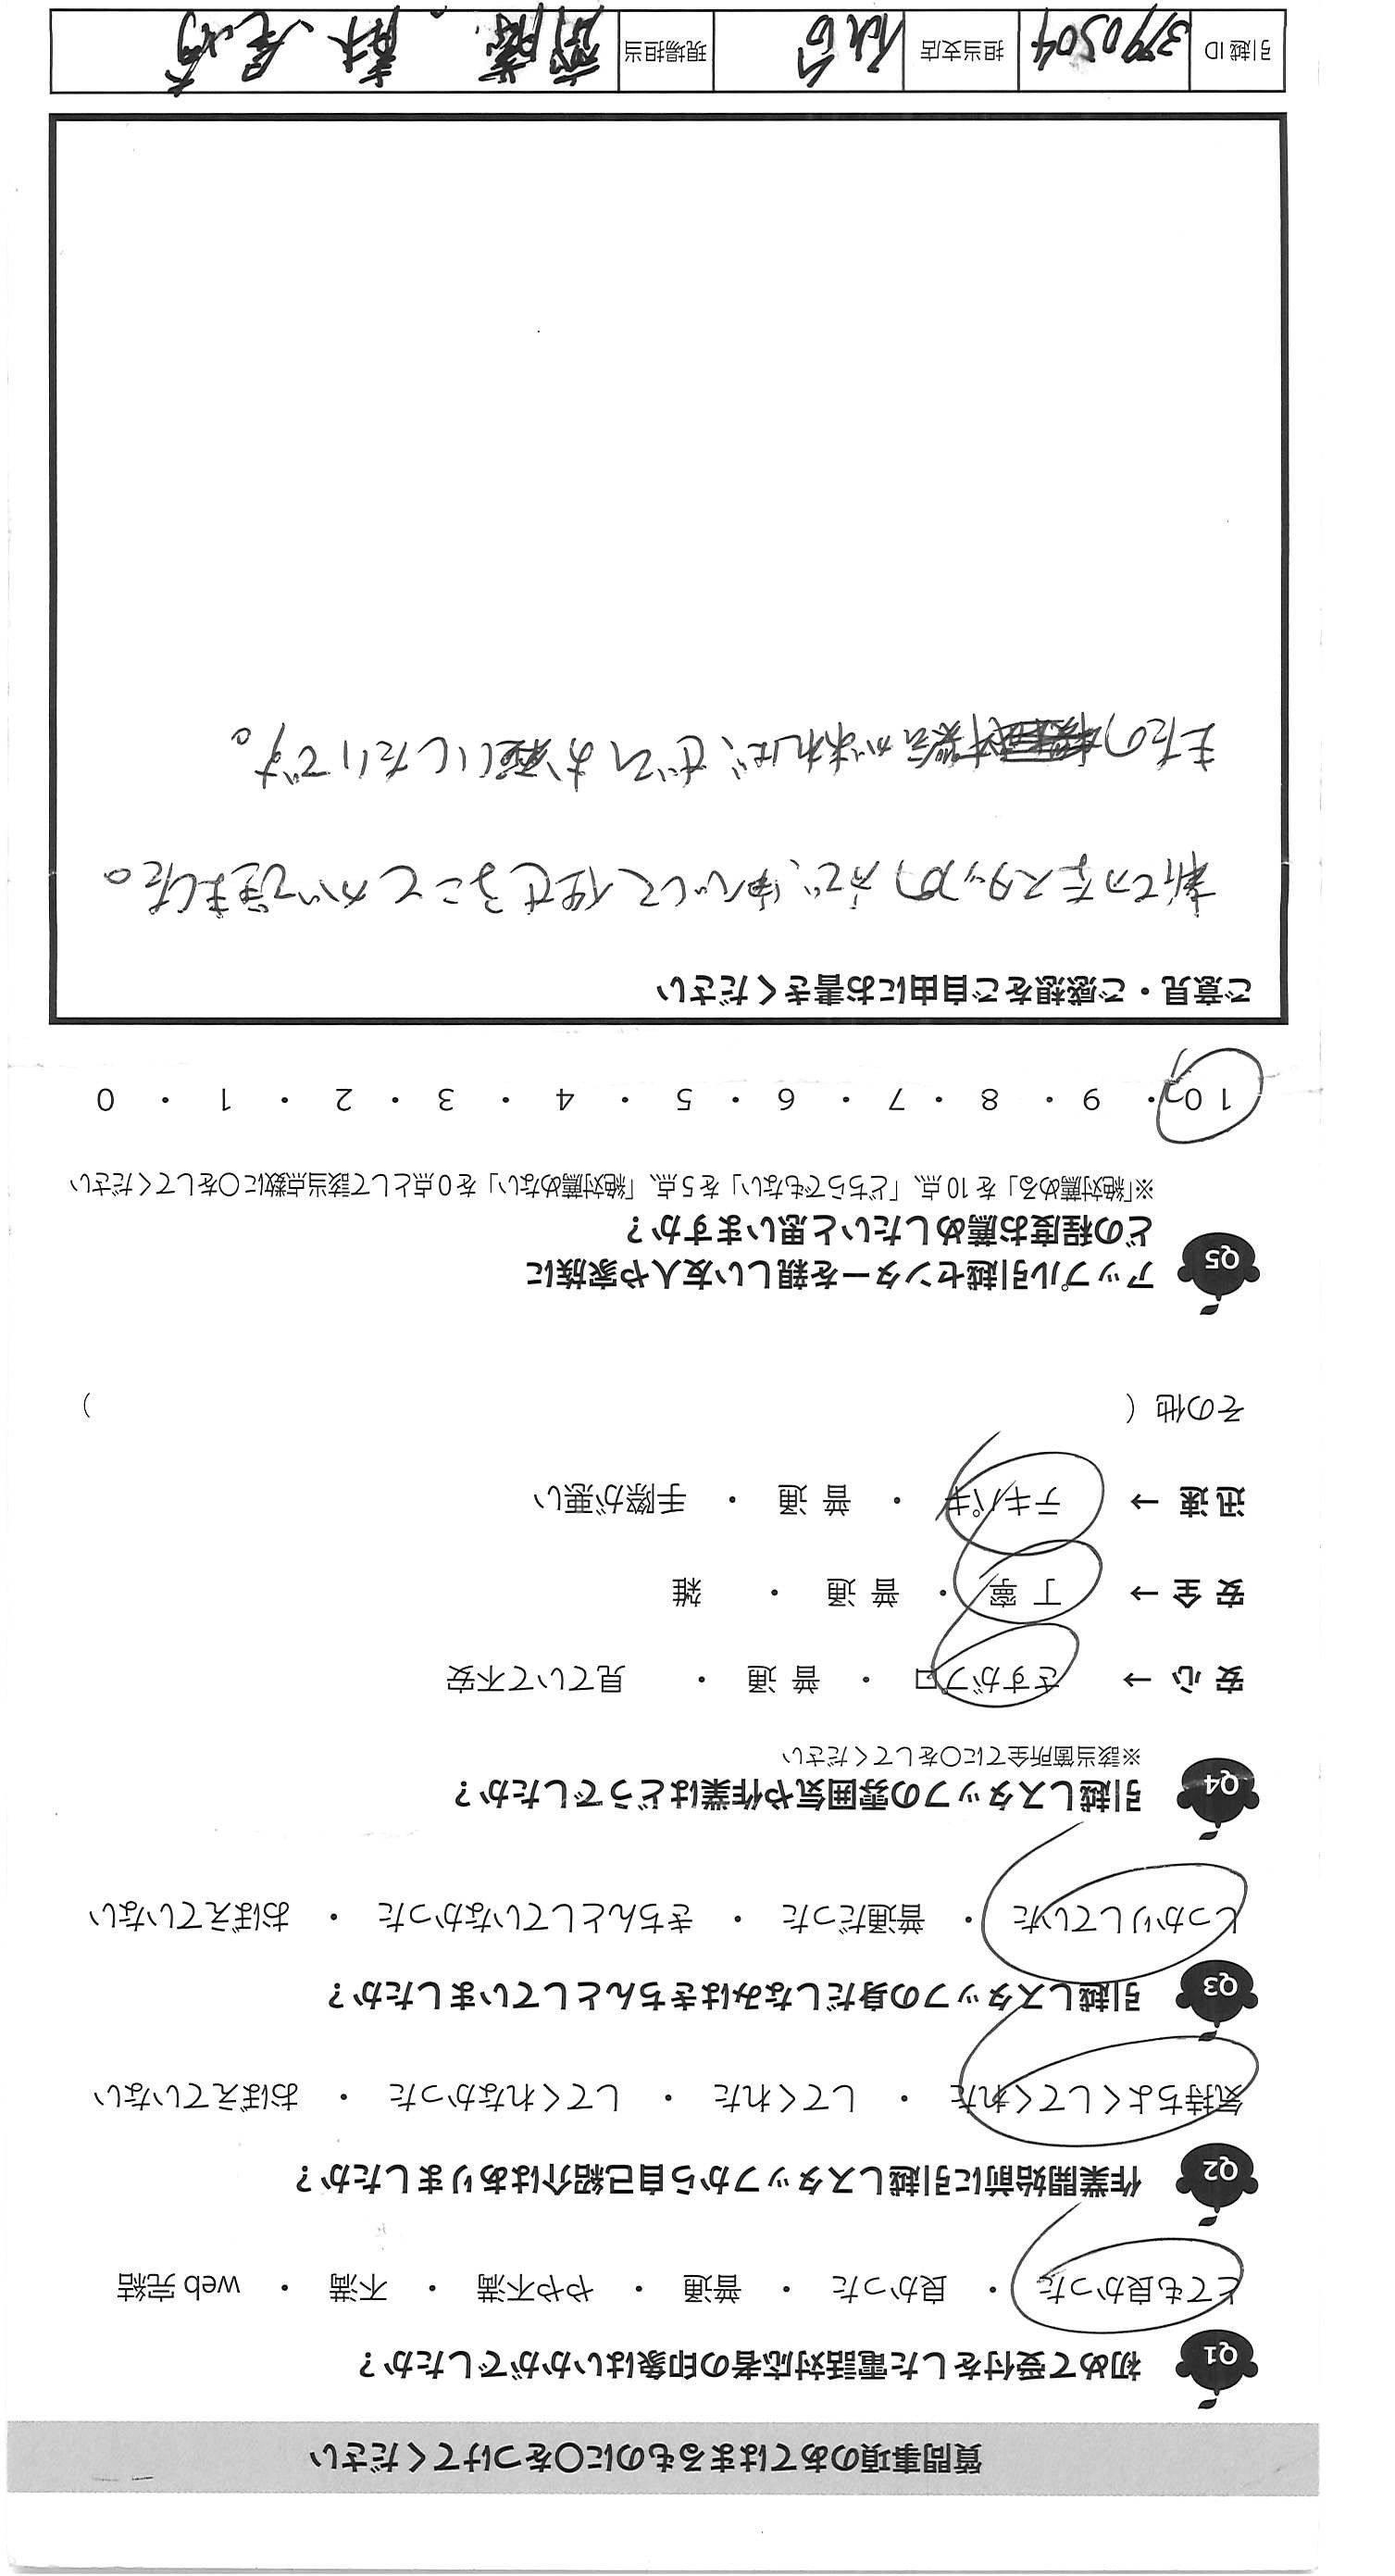 質問事項のあてはまるものに〇をつけてください
Q1 初めて受付をした電話対応者の印象はいかがでしたか？
とても良かった ・ 良かった ・ 普通 ・ やや不満 ・ 不満 ・ web 完結
Q2 作業開始前に引越しスタッフから自己紹介はありましたか？
気持ちよくしてくれた ・ してくれた ・ してくれなかった ・ おぼえていない
Q3 引越しスタッフの身だしなみはきちんとしていましたか？
しっかりしていた ・ 普通だった ・ きちんとしていなかった ・ おぼえていない
Q4 引越しスタッフの雰囲気や作業はどうでしたか？
※該当箇所全てに〇をしてください
安 心 → さすがプロ ・ 普 通 ・ 見ていて不安
安 全 → 丁 寧 ・ 普 通 ・ 雑
迅 速 → テキパキ ・ 普 通 ・ 手際が悪い
その他（ ）
Q5 アップル引越センターを親しい友人や家族に
どの程度お薦めしたいと思いますか？
※「絶対薦める」を 10 点、「どちらでもない」を 5 点、「絶対薦めない」を 0 点として該当点数に〇をしてください
10 ・ 9 ・ 8 ・ 7 ・ 6 ・ 5 ・ 4 ・ 3 ・ 2 ・ 1 ・ 0
ご意見・ご感想をご自由にお書きください
なスタッフの方で、安心して任せることができました。
またの機会があれば、ぜひお願いしたいです。
引越 ID 3790504 担当支店 仙台 現場担当 齋藤